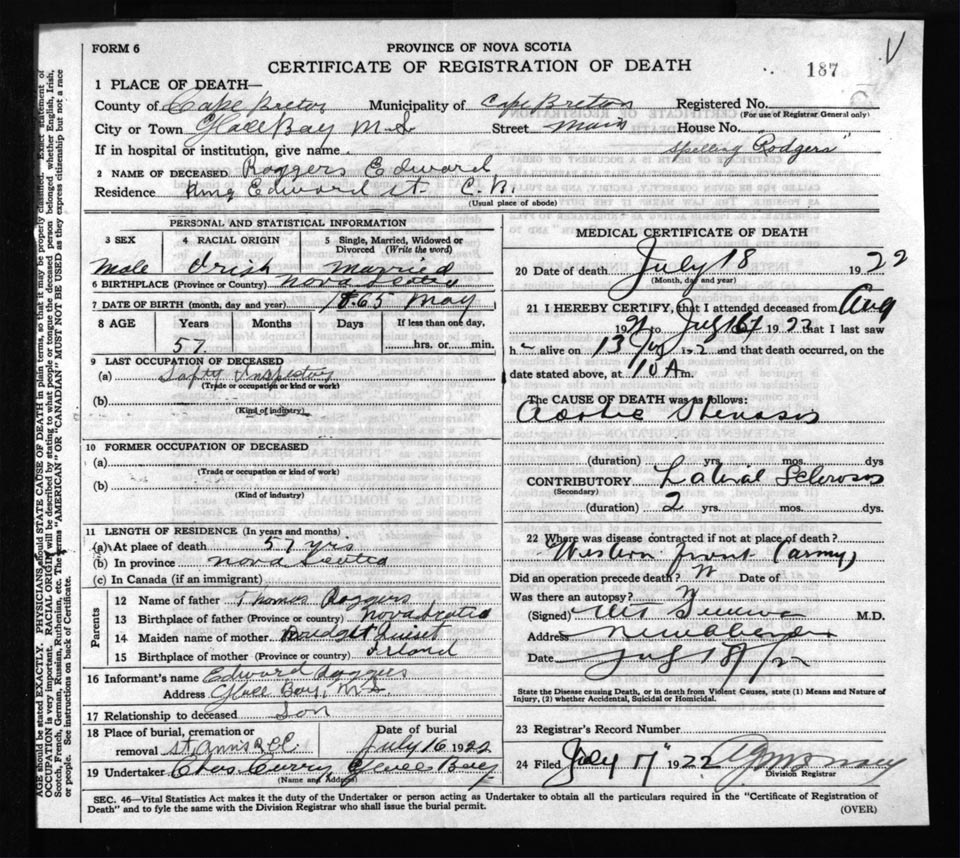 FORM 6
PROVINCE OF NOVA SCOTIA
CERTIFICATE OF REGISTRATION OF DEATH
187
1 PLACE OF DEATH—
County of Cape Breton Municipality of Cape Breton Registered No.
(For use of Registrar General only)
City or Town Glace Bay N.S. Street Main House No.
If in hospital or institution, give name
Spelling Rodgers"
2 NAME OF DECEASED Roggers Edward
Residence King Edward St. C. B.
(Usual place of abode)
PERSONAL AND STATISTICAL INFORMATION
3 SEX 4 RACIAL ORIGIN 5 Single, Married, Widowed or Divorced (Write the word)
Male Irish Married
6 BIRTHPLACE (Province or Country) Nova Scotia
7 DATE OF BIRTH (month, day and year) 1865 May
8 AGE Years Months Days If less than one day,
57 hrs. or min.
9 LAST OCCUPATION OF DECEASED
(a) Safty Inspector
(Trade or occupation or kind or work)
(b)
(Kind of industry)
10 FORMER OCCUPATION OF DECEASED
(a)
(Trade or occupation or kind of work)
(b)
(Kind of industry)
11 LENGTH OF RESIDENCE (In years and months)
(a) At place of death 57 yrs
(b) In province Nova Scotia
(c) In Canada (if an immigrant)
Parents
12 Name of father Thomas Roggers
13 Birthplace of father (Province or country) Nova Scotia
14 Maiden name of mother Bridget
15 Birthplace of mother (Province or country) Ireland
16 Informant's name Edward Roggers
Address Glace Bay, N.S.
17 Relationship to deceased Son
18 Place of burial, cremation or removal St. Anns R.C.C. Date of burial July 16 1922
19 Undertaker Chas Curry Glace Bay
(Name and Address)
MEDICAL CERTIFICATE OF DEATH
20 Date of death July 18 1922
(Month, day and year)
21 I HEREBY CERTIFY, that I attended deceased from Aug
1921 to July 1922 that I last saw
h alive on 13 and that death occurred, on the
date stated above, at 10 A m.
The CAUSE OF DEATH was as follows:
Aortic Stenosis
(duration) yrs. mos. dys
CONTRIBUTORY Lateral Sclerosis
(Secondary)
(duration) 2 yrs. mos. dys
22 Where was disease contracted if not at place of death?
Western front (army)
Did an operation precede death? N Date of
Was there an autopsy? N
(Signed) M.D.
Address
Date
State the Disease causing Death, or in death from Violent Causes, state (1) Means and Nature of Injury, (2) whether Accidental, Suicidal or Homicidal.
23 Registrar's Record Number
24 Filed July 17 1922
Division Registrar
SEC. 46—Vital Statistics Act makes it the duty of the Undertaker or person acting as Undertaker to obtain all the particulars required in the "Certificate of Registration of
Death" and to fyle the same with the Division Registrar who shall issue the burial permit.
(OVER)
AGE should be stated EXACTLY. PHYSICIANS should STATE CAUSE OF DEATH in plain terms, so that it may be properly classified. Exact statement of
OCCUPATION is very important. RACIAL ORIGIN will be described by stating to what people or tongue the deceased person belonged whether English, Irish,
Scotch, French, German, Russian, Ruthenian, etc. The terms "AMERICAN" OR "CANADIAN" MUST NOT BE USED as they express citizenship but not a race
or people. See instructions on back of Certificate.